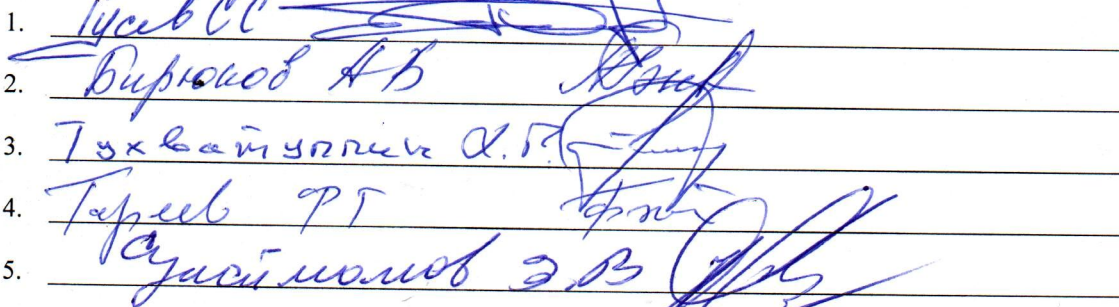 1. Гусев СС
2. Бирюков АВ
3. Тухватуллин
4. Гареев ФГ
5. Сулейманов Э.В